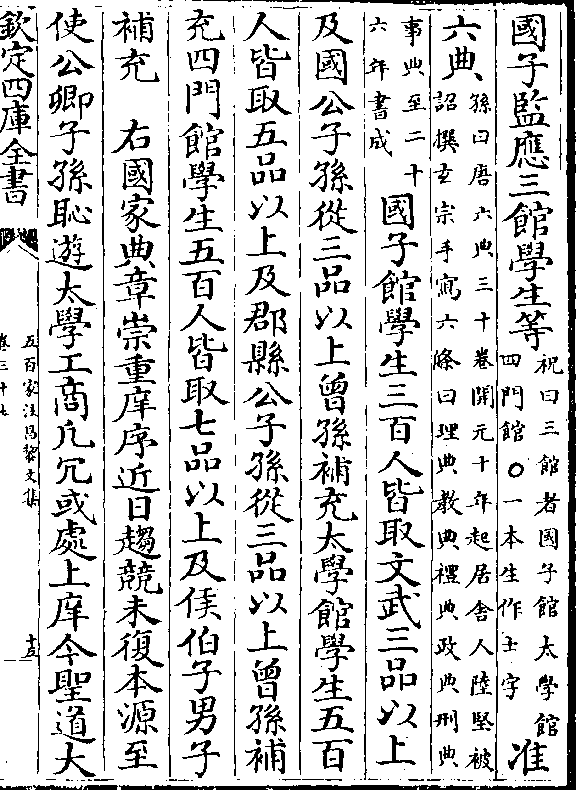 國子監應三館學生等
祝曰三館者國子館太學館
四門館○一本生作士字
准
六典
孫曰唐六典三十卷開元十年起居舍人陸堅被
詔撰玄宗手寫六條曰理典教典禮典政典刑典
事典至二十
六年書成
國子館學生三百人皆取文武三品以上
及國公子孫從三品以上曾孫補充太學館學生五百
人皆取五品以上及郡縣公子孫從三品以上曾孫補
充四門館學生五百人皆取七品以上及侯伯子男子
補充 右國家典章崇重庠序近日趨競未復本源至
使公卿子孫恥遊太學工商凡冗或處上庠今聖道大
欽定四庫全書
五百家注昌黎文集
卷三十七
十五